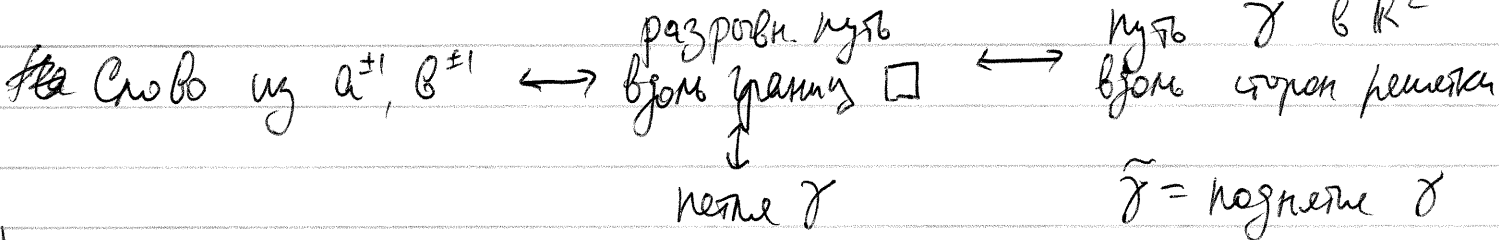 Слово из a^{±1}, b^{±1} ⟷ разрывн. путь вдоль границ □ ⟷ путь γ в ℝ² вдоль сторон решетки
↕
петля γ
γ̃ = поднятие γ